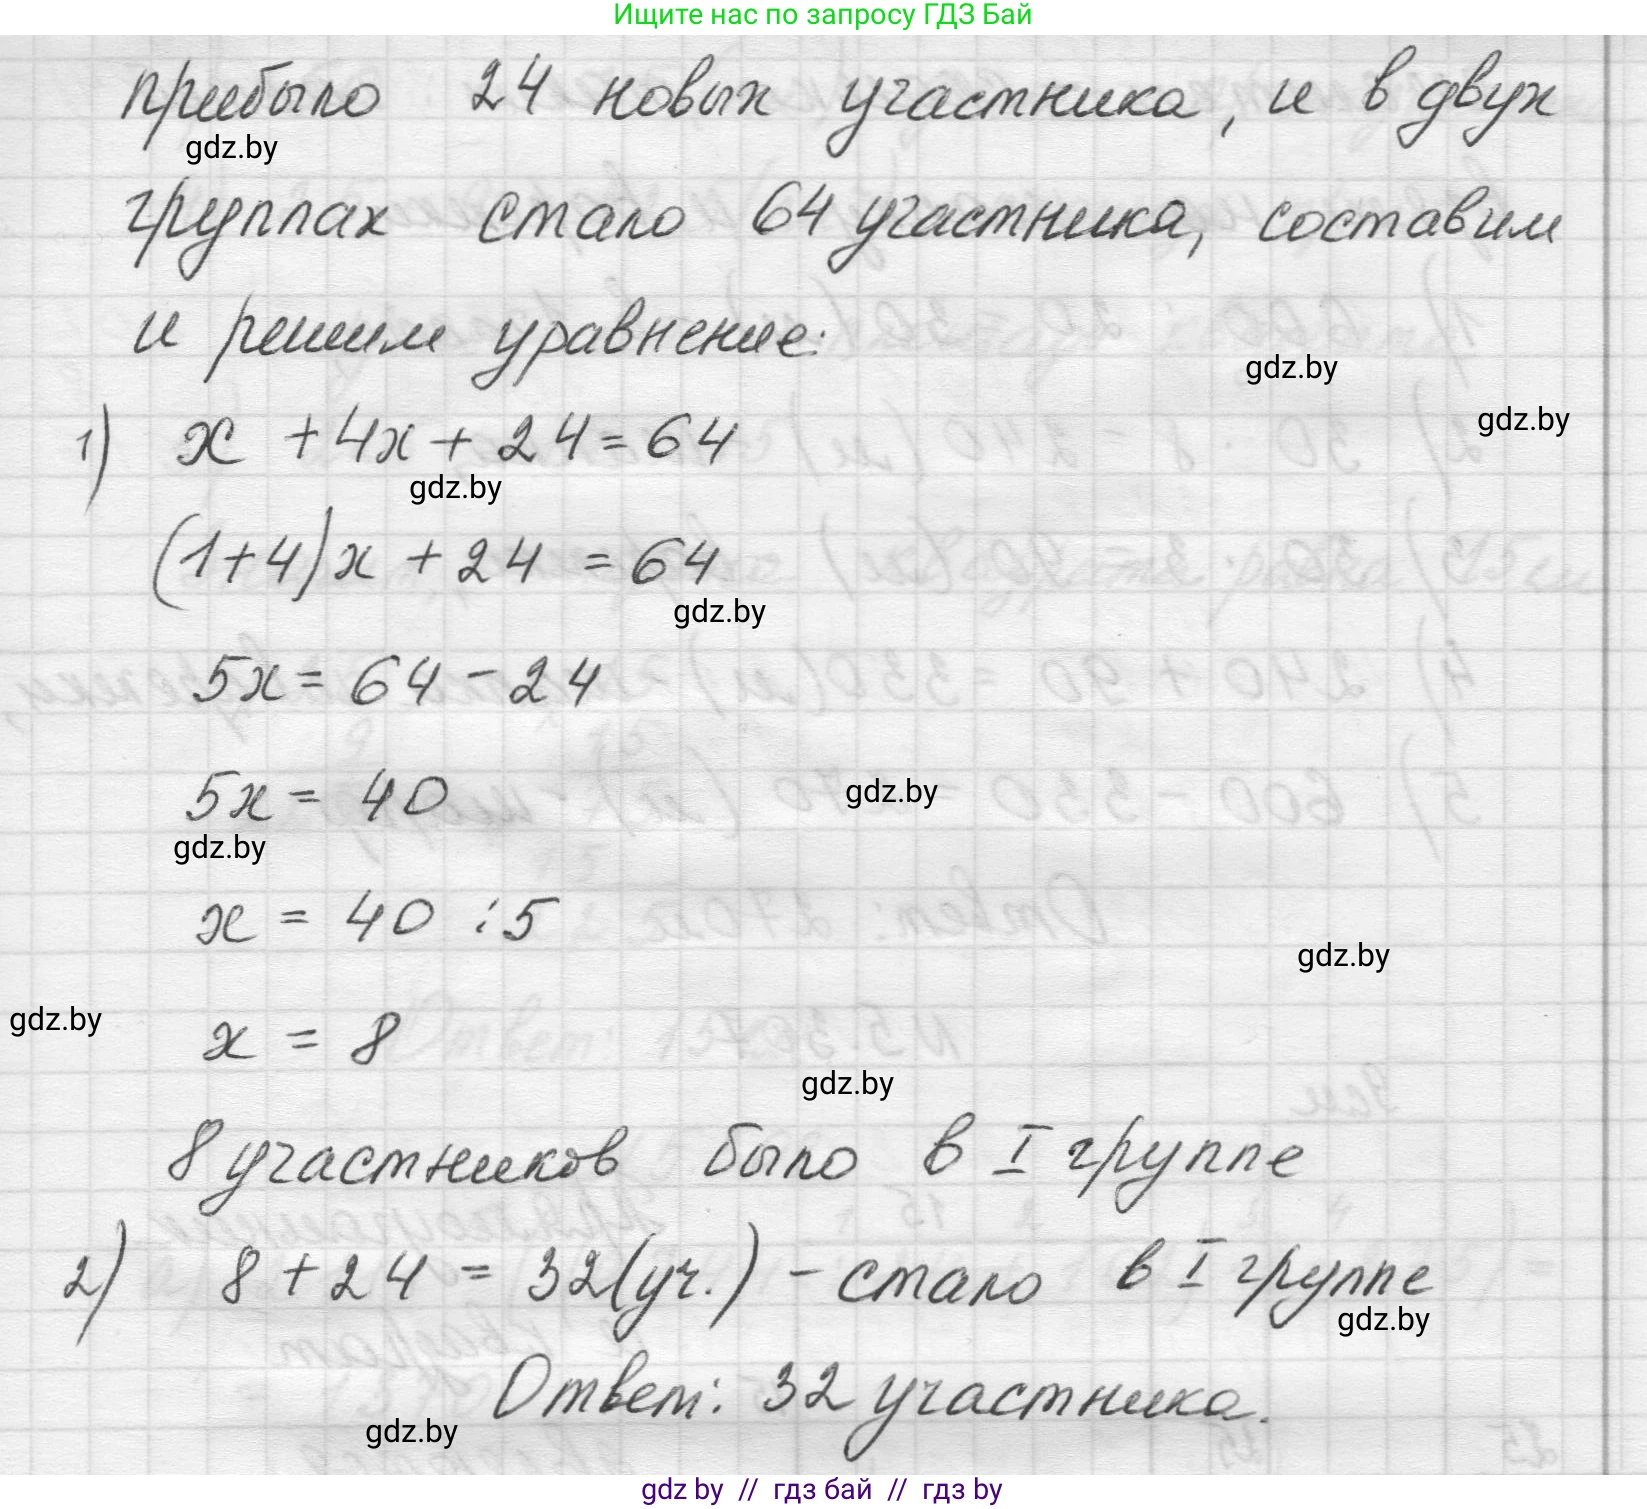 Ищите нас по запросу ГДЗ Бай
прибыло 24 новых участника, и в двух
gdz.by
группах стало 64 участника, составим
и решим уравнение:
gdz.by
gdz.by
1) x + 4x + 24 = 64
gdz.by
(1+4)x + 24 = 64
gdz.by
5x = 64 - 24
5x = 40
gdz.by
gdz.by
x = 40 : 5
gdz.by
gdz.by
x = 8
gdz.by
8 участников было в I группе
2) 8 + 24 = 32 (уч.) - стало в I группе
gdz.by
Ответ: 32 участника.
gdz.by
gdz by // гдз бай // гдз by